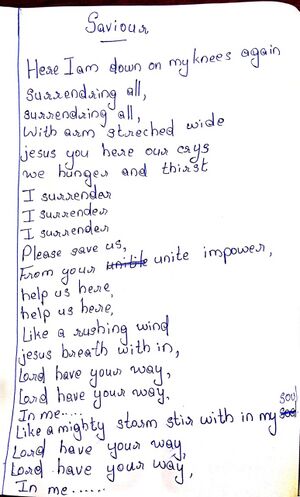 Saviour
Here I am down on my knees again
surrendring all,
surrendring all,
With arm streched wide
jesus you here our crys
we hunger and thirst
I surrender
I surrender
I surrender
Please save us,
From your unite impower,
help us here,
help us here,
Like a rushing wind
jesus breath with in,
Lord have your way,
Lord have your way,
In me.....
Like a mighty storm stir with in my soul
Lord have your way,
Lord have your way,
In me ......